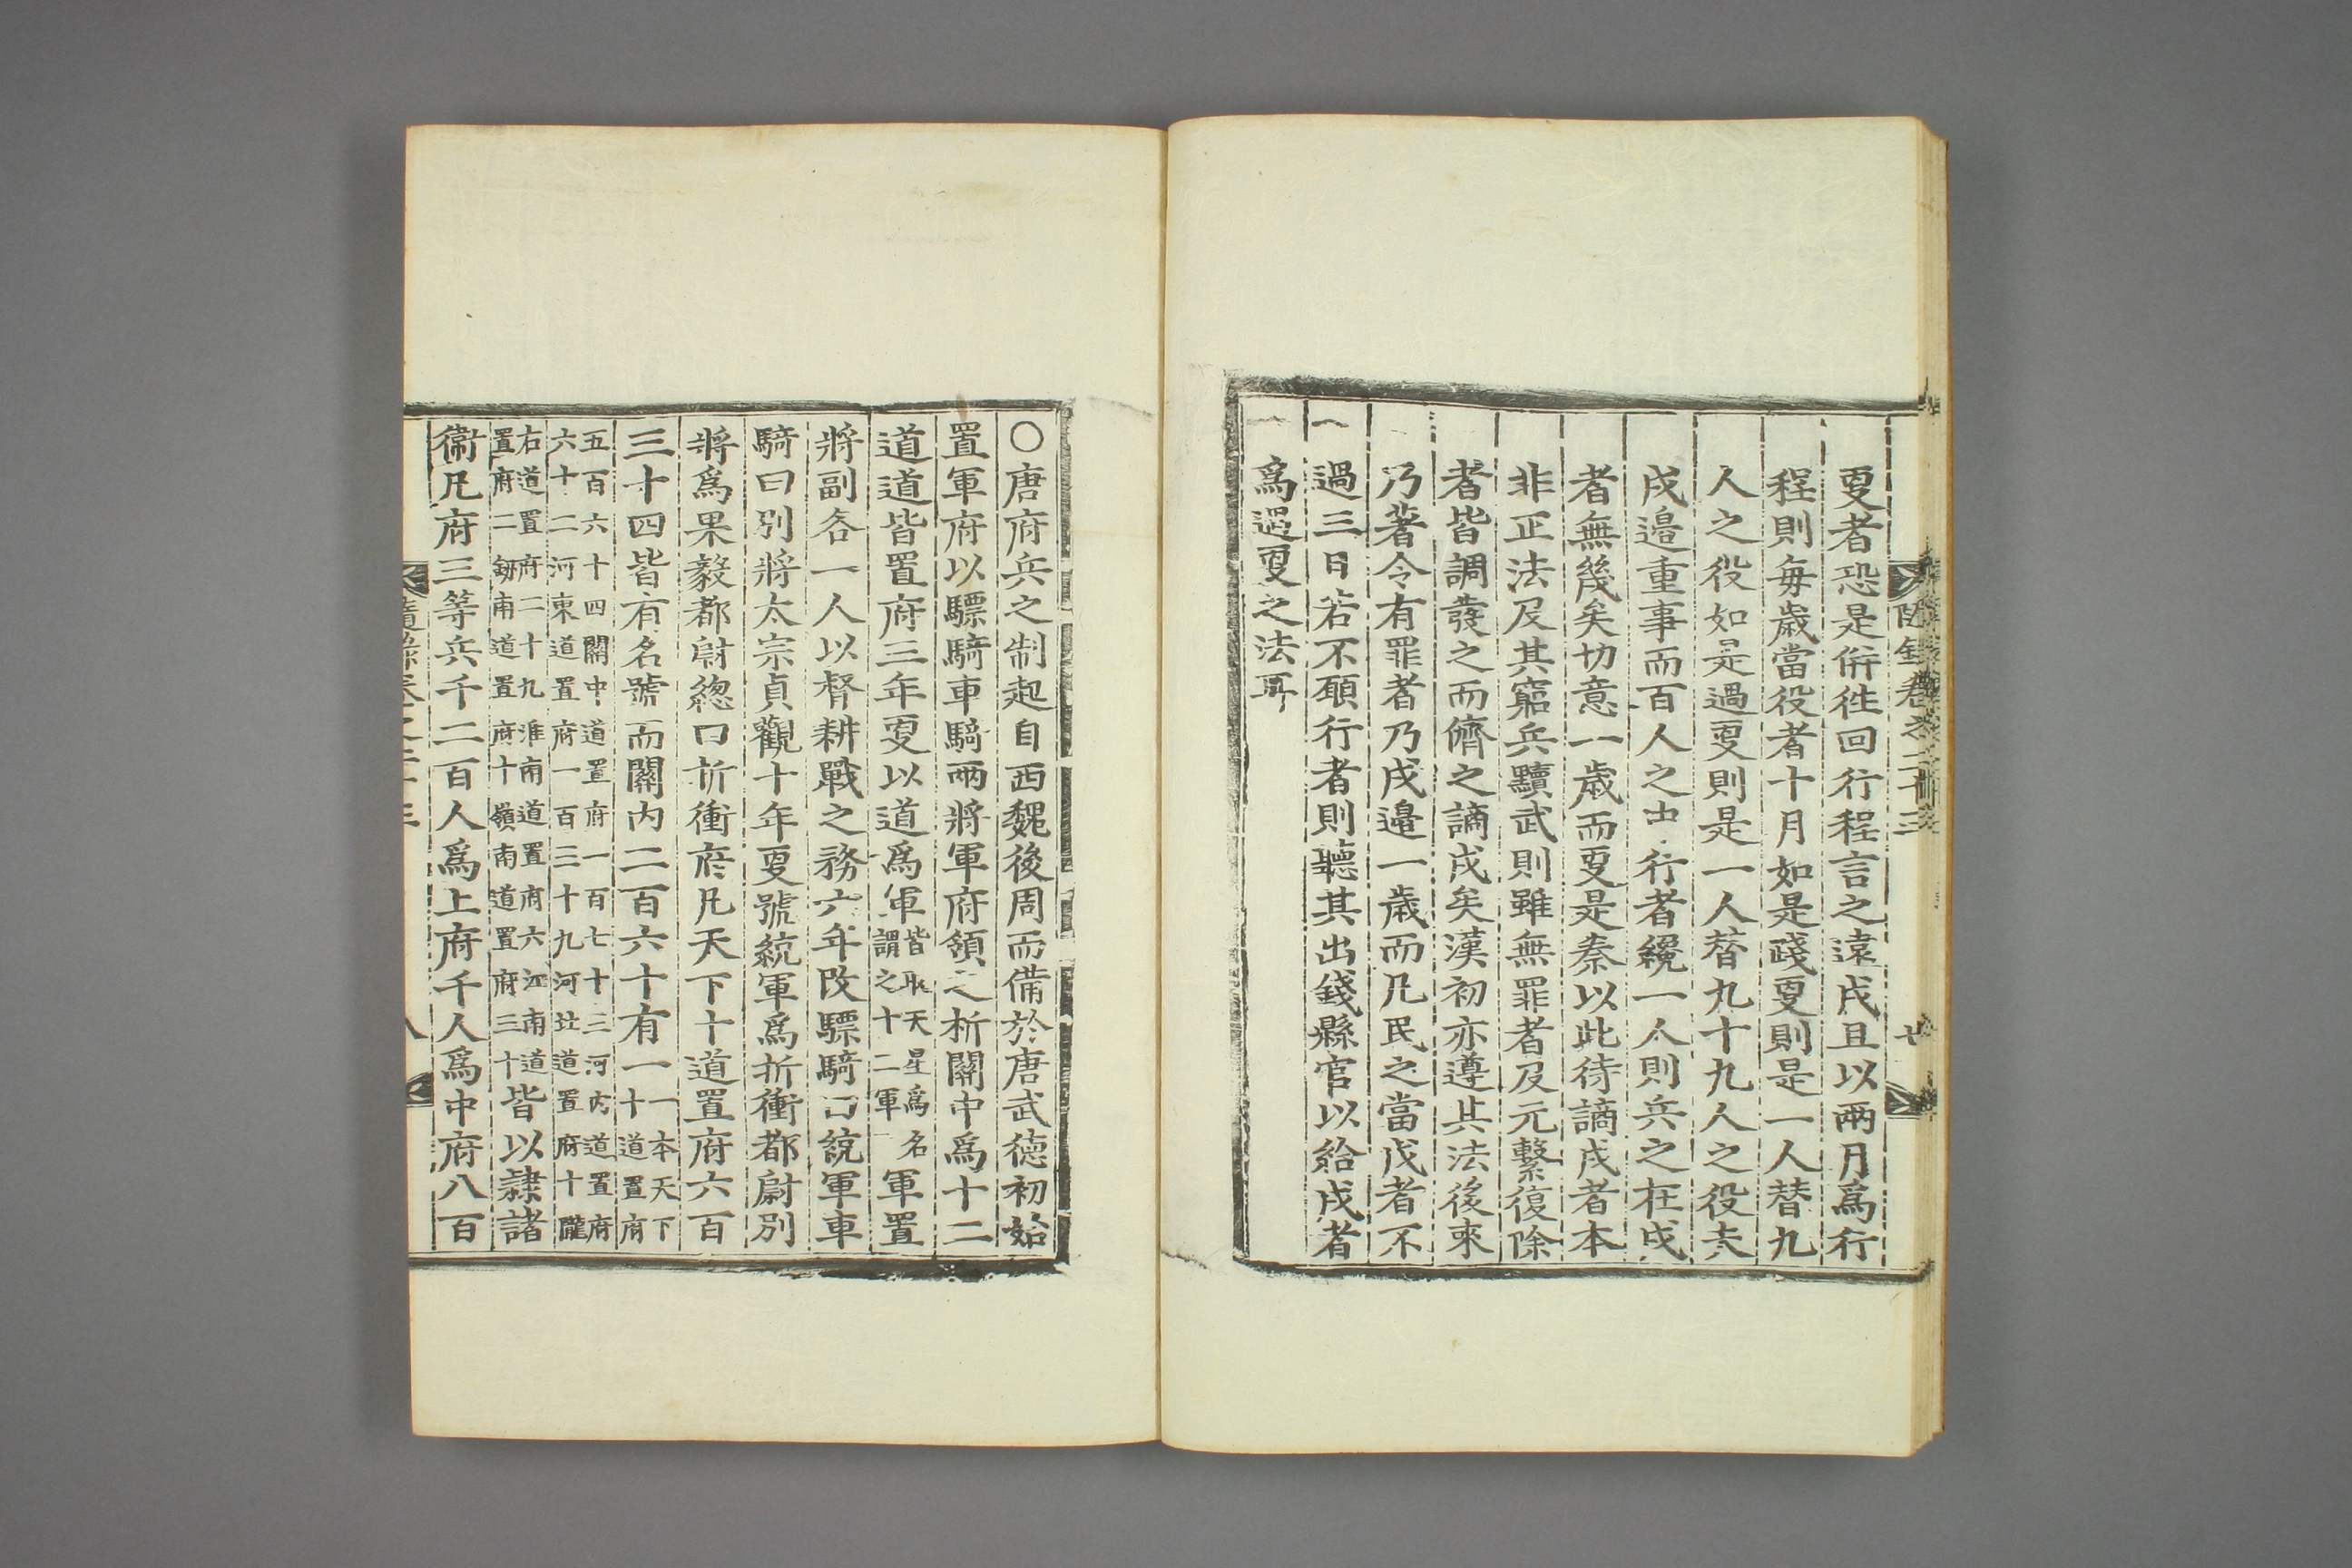 隨錄卷之二十三
七
更者恐是倂徃回行程言之遠戍且以兩月爲行
程則每歲當役者十月如是踐更則是一人替九
人之役如是過更則是一人替九十九人之役夫
戍邉重事而百人之中行者纔一人則兵之在戍
者無幾矣切意一歲而更是秦以此待謫戍者本
非正法及其窮兵黷武則雖無罪者及元繫復除
者皆調發之而儕之謫戍矣漢初亦遵其法後來
乃著令有罪者乃戍邉一歲而凡民之當戍者不
過三日若不願行者則聽其出錢縣官以給戍者
爲過更之法耳
○唐府兵之制起自西魏後周而備於唐武德初始
置軍府以驃騎車騎兩將軍府領之析關中爲十二
道道皆置府三年更以道爲軍皆取天星爲名謂之十二軍軍置
將副各一人以督耕戰之務六年改驃騎曰統軍車
騎曰別將太宗貞觀十年更號統軍爲折衝都尉別
將爲果毅都尉緫曰折衝府凡天下十道置府六百
三十四皆有名號而關内二百六十有一一本天下十道置府
五百六十四關中道置府一百七十三河内道置府六十二河東道置府一百三十九河北道置府十隴
右道置府二十九淮南道置府六江南道置府二劒南道置府十嶺南道置府三十皆以隷諸
衞凡府三等兵千二百人爲上府千人爲中府八百
隨錄卷之二十三
八